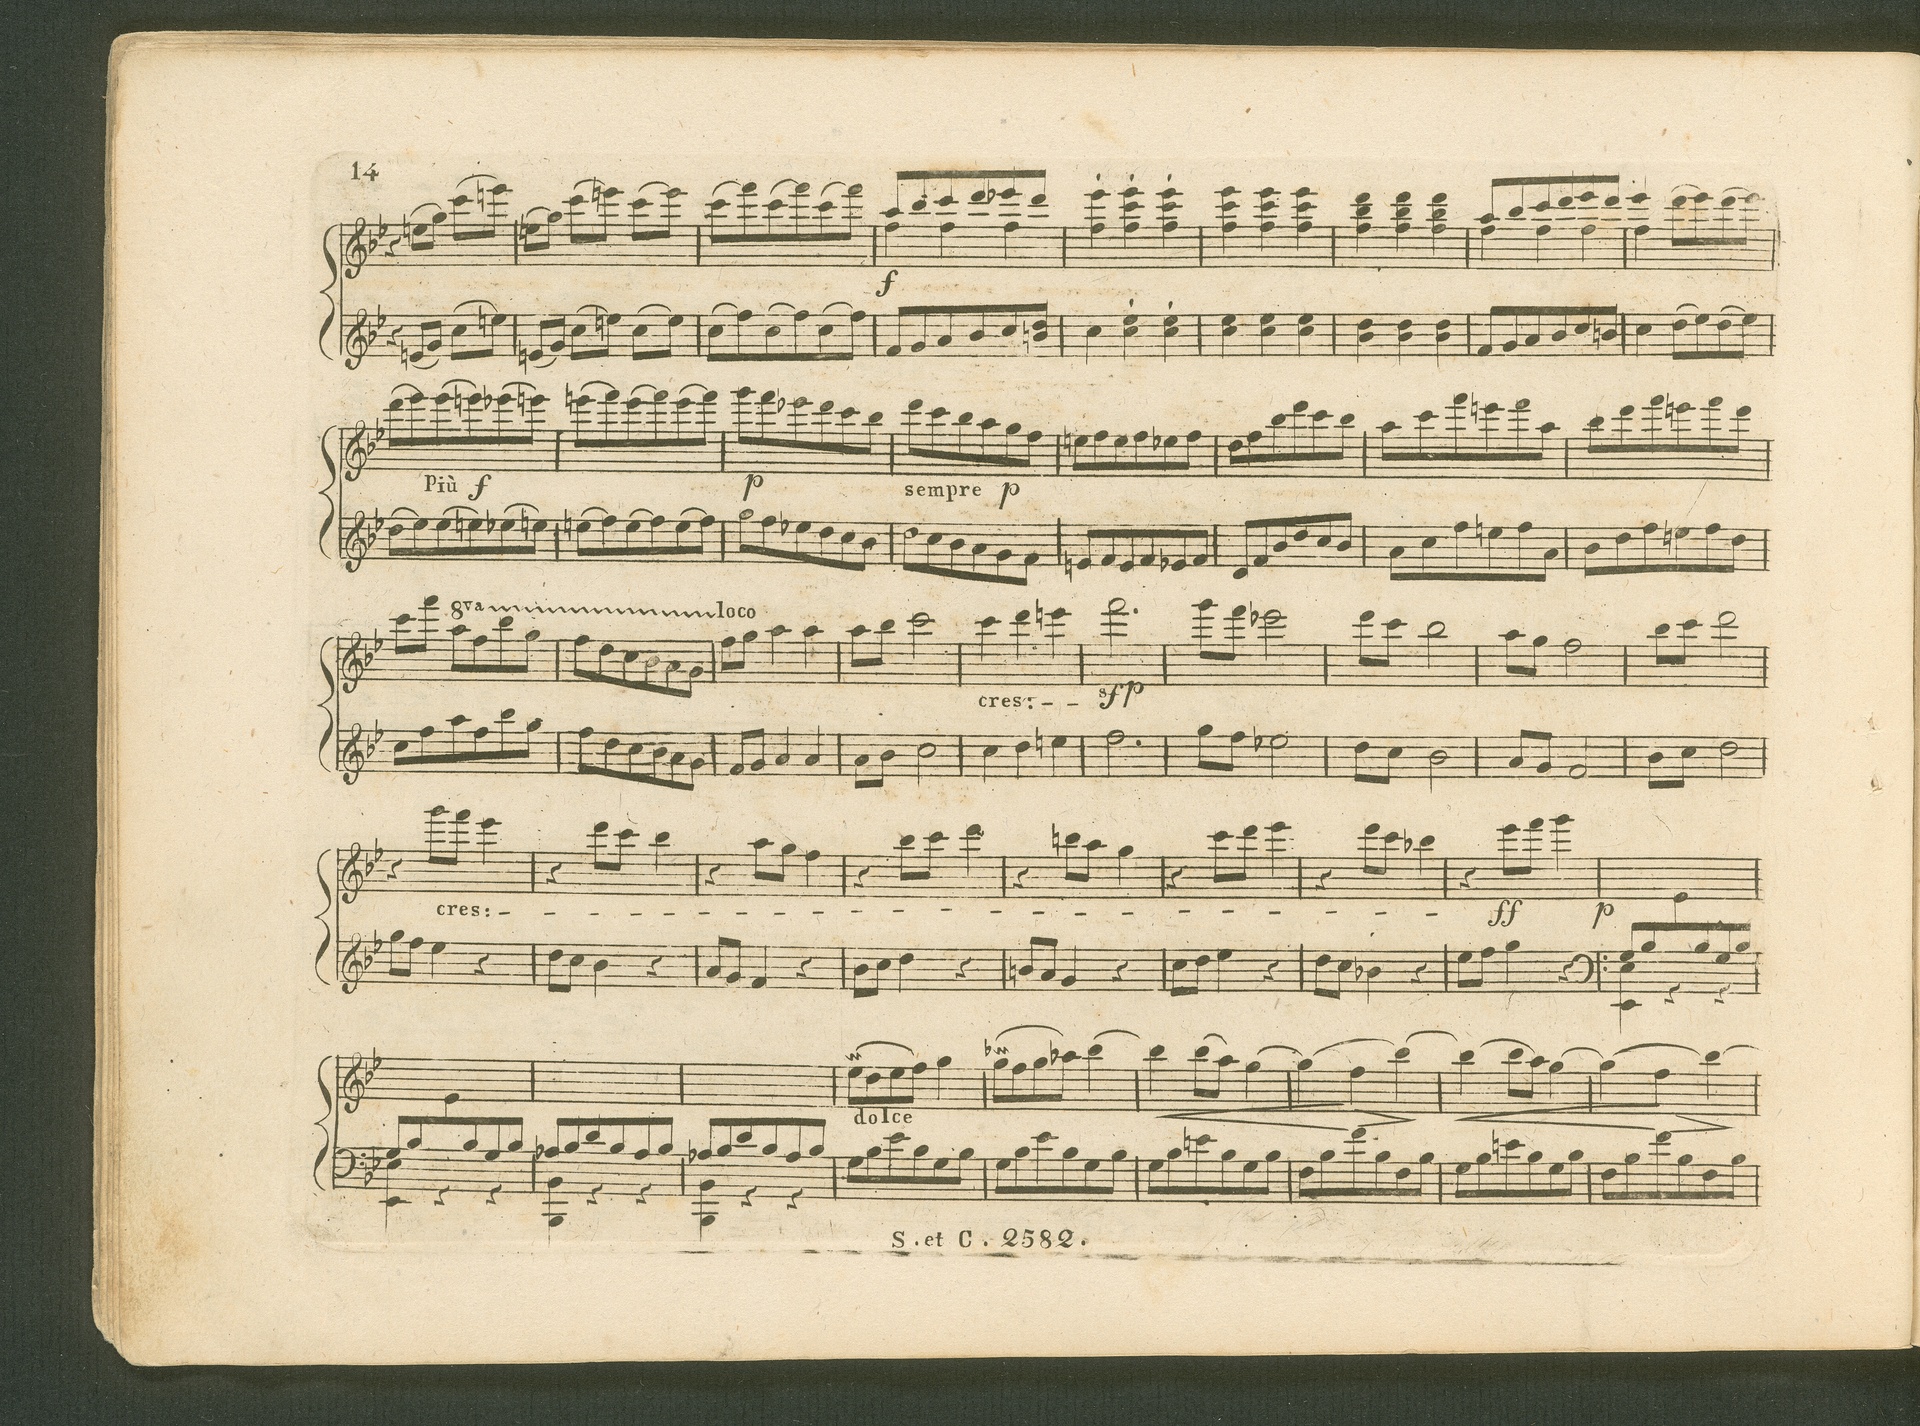 14
f
Più f p sempre p
8va loco
cres: sfp
cres: ff p
dolce
S. et C. 2582.